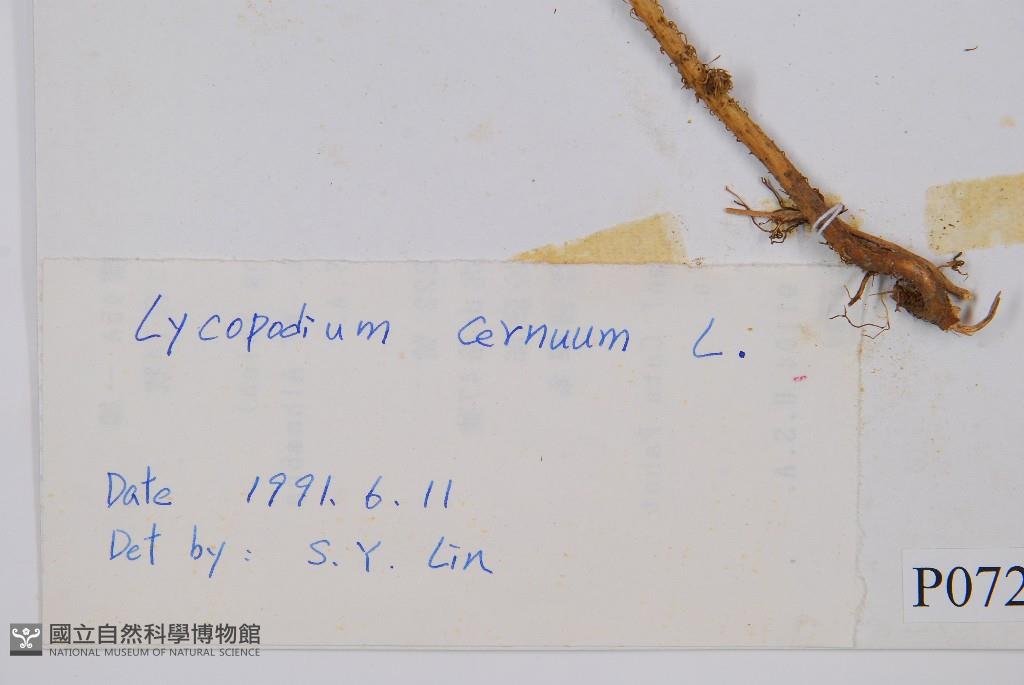 Lycopodium cernuum L.
Date 1991. 6. 11
Det by: S.Y. Lin
P072
國立自然科學博物館
NATIONAL MUSEUM OF NATURAL SCIENCE